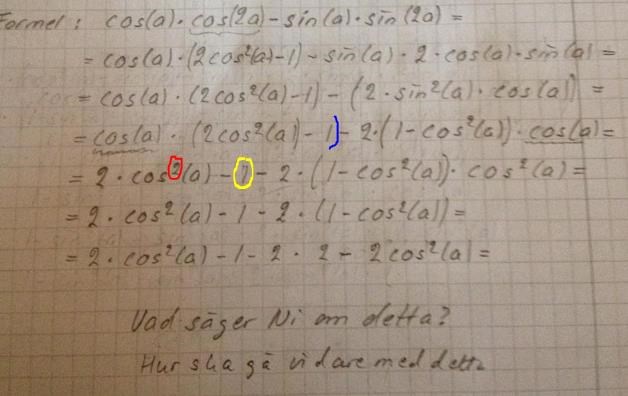 Formel: cos(a)·cos(2a)-sin(a)·sin(2a)=
=cos(a)·(2cos²(a)-1)-sin(a)·2·cos(a)·sin(a)=
=cos(a)·(2cos²(a)-1)-(2·sin²(a)·cos(a))=
=cos(a)·(2cos²(a)-1)-2·(1-cos²(a))·cos(a)=
=2·cos²(a)-1-2·(1-cos²(a))·cos²(a)=
=2·cos²(a)-1-2·(1-cos²(a))=
=2·cos²(a)-1-2·2-2cos²(a)=
Vad säger Ni om detta?
Hur ska gå vidare med detta